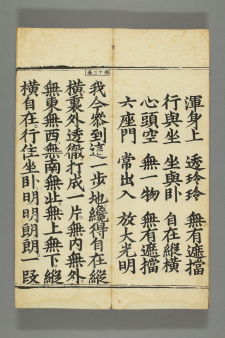 渾身上 透玲玲 無有遮擋
行與坐 坐與卧 自在縱橫
心頭空 無一物 無有遮擋
六座門 常出入 放大光明
我今參到這一步地纔得自在縱
橫裏外透徹打成一片無內無外
無東無西無南無北無上無下縱
橫自在行住坐卧明明朗朗一段